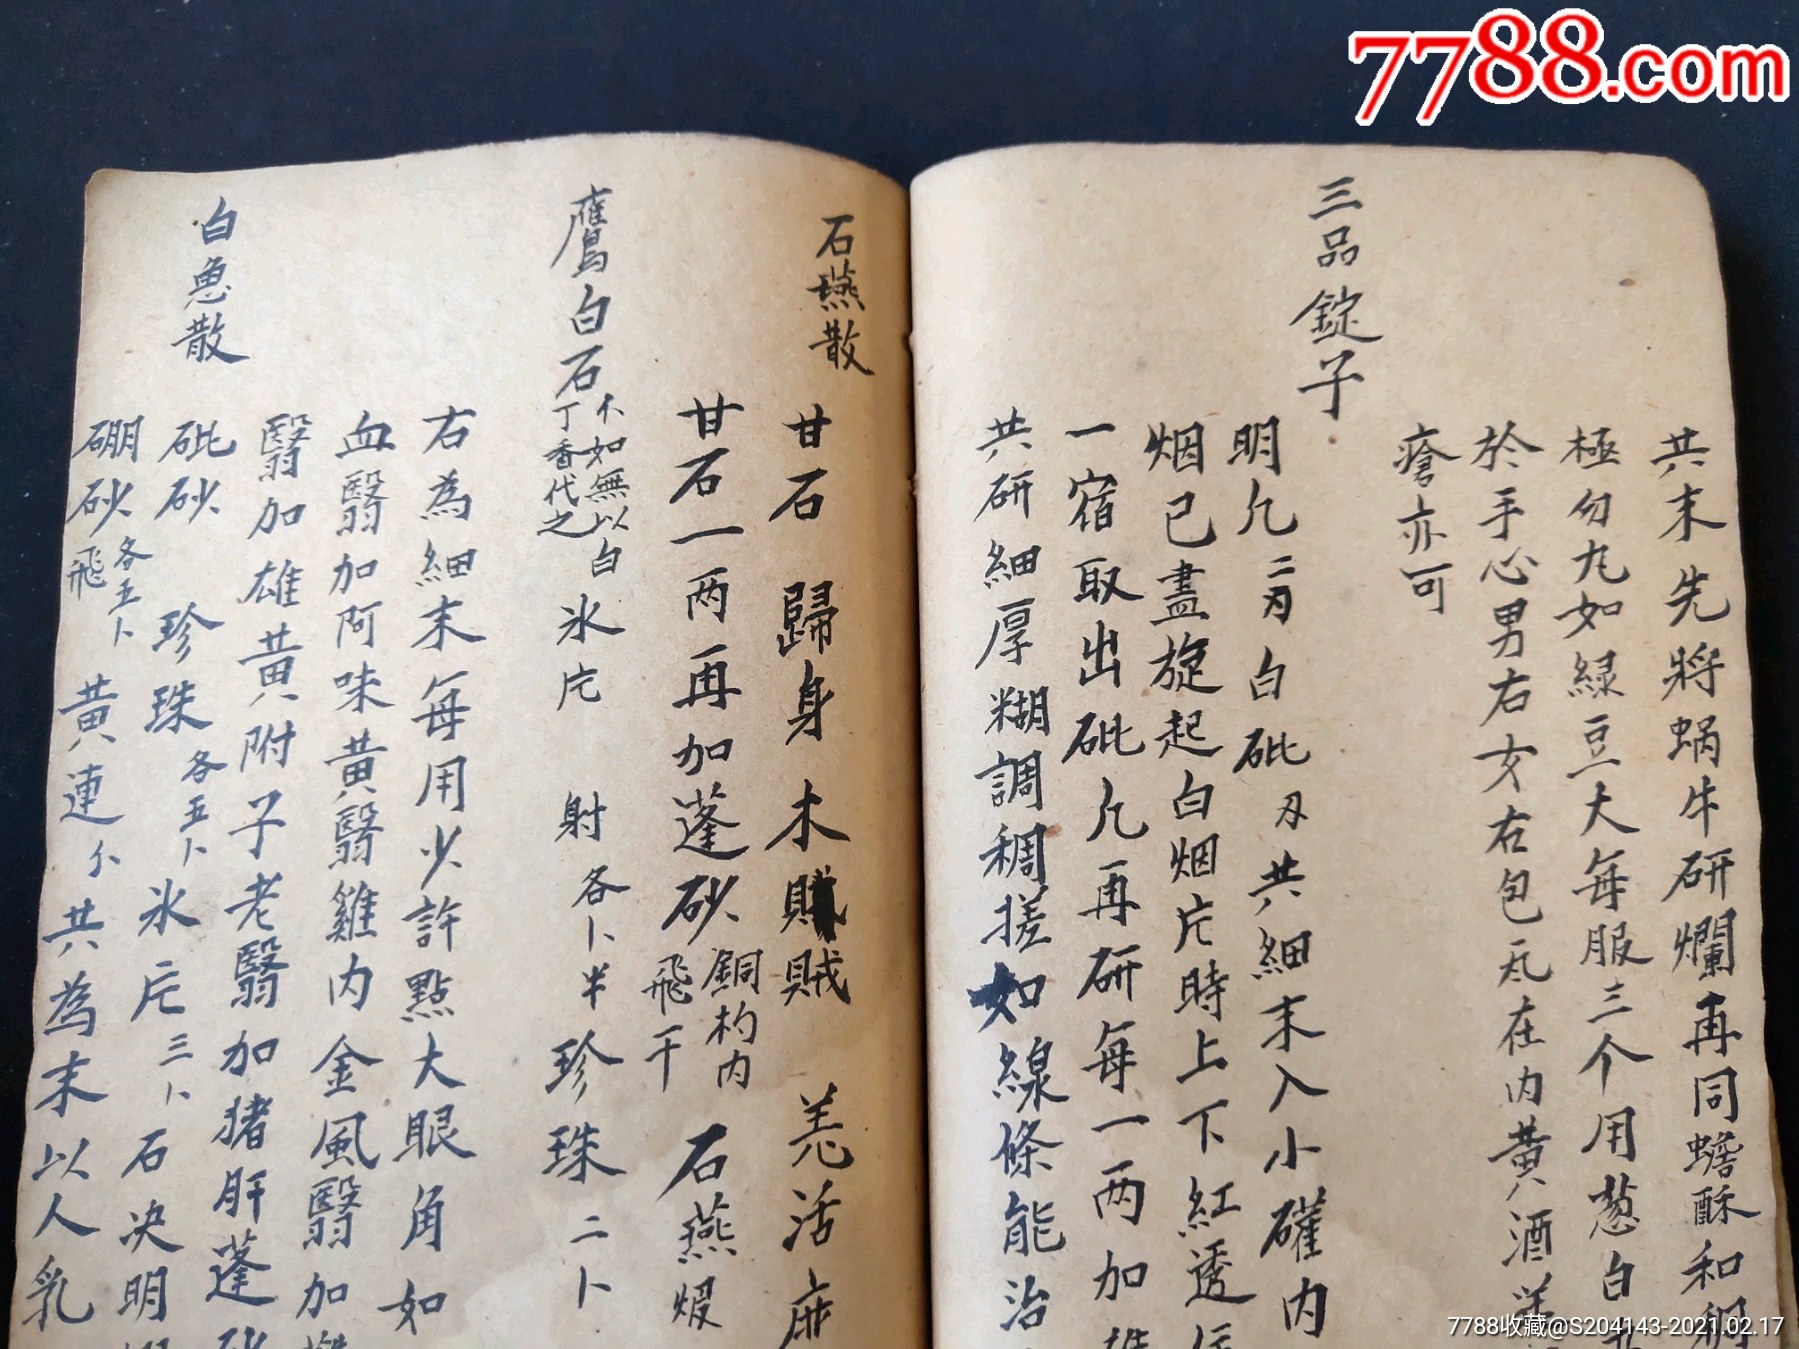 7788.com
共末先將蝸牛研爛再同蟾酥和稠
極勿九如緑豆大每服三个用葱白五
於手心男右女右包𤆵在内黄酒送
瘡亦可
三品錠子
明凢二刄白砒刄共細末入小礶内
烟已盡旋起白烟片時上下紅透
一宿取出砒凢再研每一两加雄
共研細厚糊調稠搓如線條能治
石燕散
甘石 歸身 木賊 羌活 麻
甘石一两再加蓬砂銅杓内飛干 石燕煅
鷹白石不如無以白丁香代之 氷片 射各卜半 珍珠二卜
右為細末每用少許點大眼角如
血翳加阿味黄翳雞内金風翳加
翳加雄黄附子老翳加猪肝蓬砂
白魚散
砒砂 珍珠各五卜 氷片三卜 石决明
硼砂飛各五卜 黄連尒共為末以人乳
7788收藏@S204143-2021.02.17